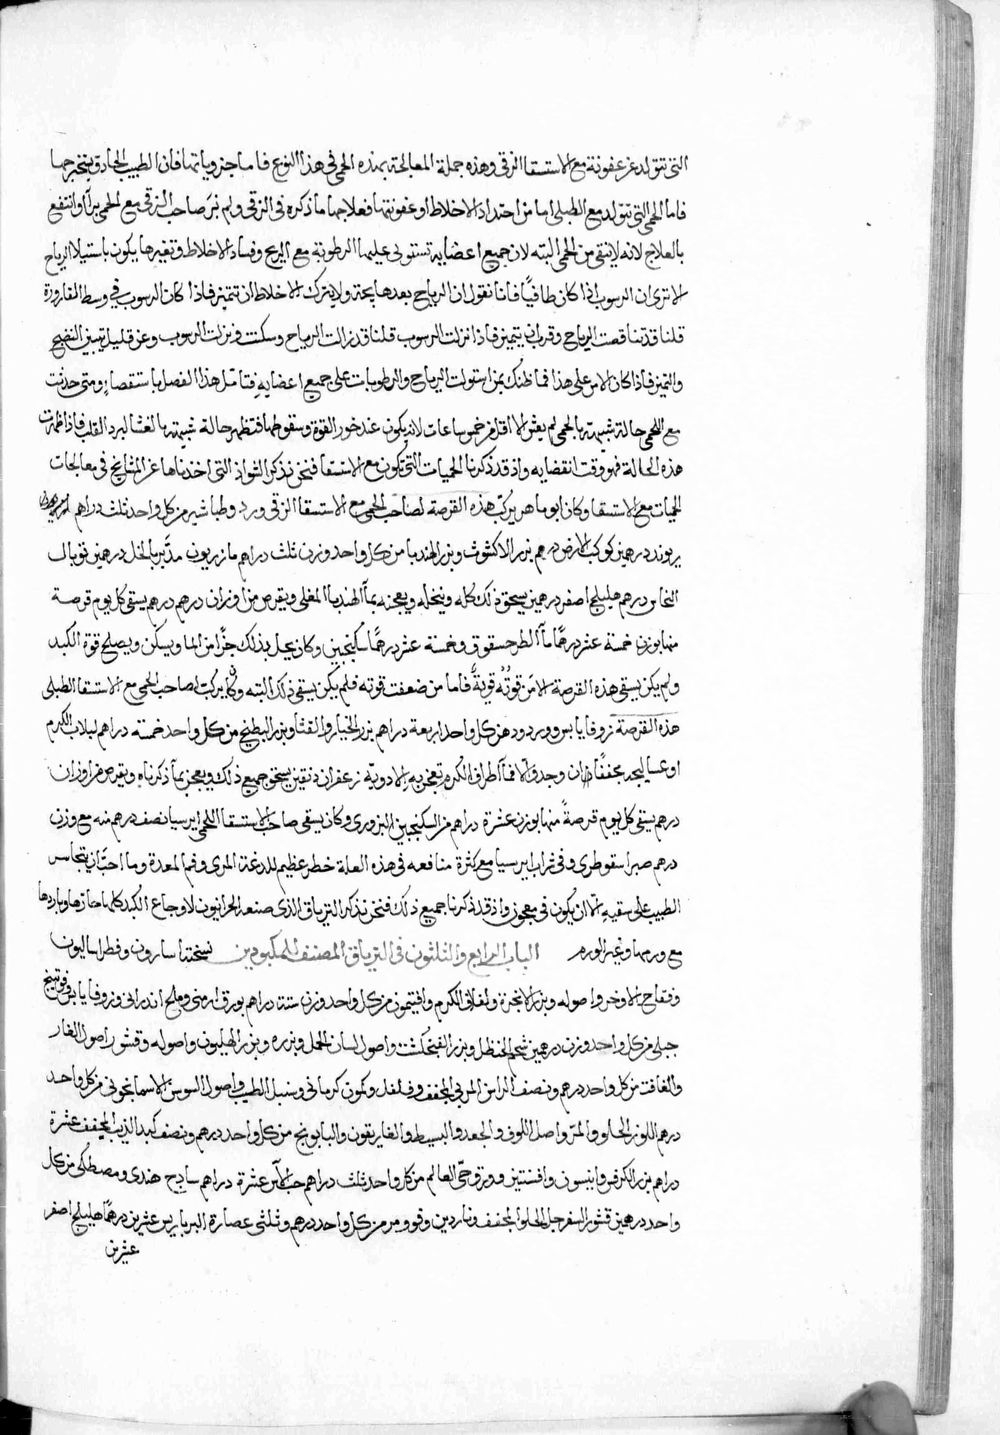 التى تتولد عن عفونة مع الاستسقا الزقى وهذه جملة المعالجة بهذه الحمى فى هذا النوع فاما جزوياتها فان الطبيب الحاذق يتخيرجها
فاما الحمى التى تتولد مع الطبلى اما من احتداد الاخلاط او عفونتها فعلاجها ما ذكره فى الزقى ولم نر صاحب الزقى مع الحمى برأ وانتفع
بالعلاج لانه لا ينقى من الحمى البته لان جميع اعضايه تستولى عليها الرطوبة مع الريح وفساد الاخلاط وتغيرها يكون باستيلا الرياح
الا ترى ان الرسوب اذا كان طافيًا فانا نقول ان الرياح بعدها بحتة ولا يترك الاخلاط ان تتميز فاذا كان الرسوب فى وسط القارورة
قلنا قد تناقصت الرياح وقرب ان يتميز فاذا نزلت الرسوب قلنا قد زالت الرياح وسكنت ونزلت الرسوب وعن قليل يتبين النضج
والتميز فاذا كان الامر على هذا فما ظنك بمن استولت الرياح والرطوبات على جميع اعضايه فتأمل هذا الفصل باستقصاء ومتى حدثت
مع اللحمى حالة شبيهة بالحمى لم يعش الا اقل من خمس ساعات لانه يكون عند خور القوة وسقوطها فتظهر حالة شبيهة بالغشا لبرد القلب فاذا ظهرت
هذه الحالة فهو وقت انقضايه واذ قد ذكرنا الحميات التى تكون مع الاستسقا فنحن نذكر الشواذ التى اخذناها عن المشايخ فى معالجات
الحميات مع الاستسقا وكان ابو ماهر يركب هذه القرصة لصاحب الحمى مع الاستسقا الزقى ورد وطباشير من كل واحد ثلث دراهم
ريوند درهمين كوكب الارض درهم بزر الاكشوث وبزر الهندبا من كل واحد وزن ثلث دراهم مازريون مدبر بالخل درهمين توبال
النحاس درهم هليلج اصفر درهمين يسحق ذلك كله وينخله ويعجنه بمآ الهندبا المغلى ويقرص من اوزان درهم درهم يسقى كل يوم قرصة
منها بوزن خمسة عشر درهمًا مآ الطرحسقوق وخمسة عشر درهمًا سكنجبين وكان يحل بذلك جزًا من الما ويسكن ويصلح قوة الكبد
ولم يكن يسقى هذه القرصة الا من قوته قوية فاما من ضعفت قوته فلم يكن يسقى ذلك البته وكان يركب لصاحب الحمى مع الاستسقا الطبلى
هذه القرصة زوفا يابس وورد ودهن كل واحد اربعة دراهم بزر الخيار والقثا وبزر البطيخ من كل واحد خمسة دراهم لبلاب الكرم
او عساليجه مجففًا ان وجد والا فمآ اطراف الكرم تعجن به الادوية زعفران دنقين يسحق جميع ذلك ويعجن بما ذكرناه ويقرص من اوزان
درهم يسقى كل يوم قرصةً منها بوزن عشرة دراهم من السكنجبين البزورى وكان يسقى صاحب الاستسقا اللحمى ايرسيا نصف درهم منه مع وزن
درهم صبر اسقوطرى وفى شراب ايرسيا مع كثرة منافعه فى هذه العلة خطر عظيم للدغة المرى وفم المعدة وما احب ان يتجاسر
الطبيب على سقيه الا ان يكون فى معجون واذ قد ذكرنا جميع ذلك فنحن نذكر الترياق الذى صنعه الحرانيون لاوجاع الكبد كلها حارتها وباردها
مع ورمها وغير الورم الباب الرابع والثلثون فى الترياق المصنف للمكبودين نسختها اسارون وفطراساليون
وفقاح الاذخر واصوله وبزر الانجرة ولفاف الكرم وافتيمون من كل واحد وزن ستة دراهم بورق ارمنى وملح اندرانى وزوفا يابس وفوتنج
جبلى من كل واحد وزن درهمين شحم الحنظل وبزر الفنجنكشت واصول لسان الحمل وبزره وبزر الهليون واصوله وقشور اصول الغار
والغافت من كل واحد درهم ونصف الراسن المربى المجفف وفلفل وكمون كرمانى وسنبل الطيب واصول السوس الاسمانجونى من كل واحد
درهم اللوز الحلو والمر واصل اللوف والجعد والبسيط والغاريقون والبابونج من كل واحد درهم ونصف كبد الذيب المجفف عشرة
دراهم بزر الكرفس وانيسون وافسنتين وورق حى العالم من كل واحد ثلث دراهم حب الآس عشرة دراهم ساذج هندى ومصطكى من كل
واحد درهمين قشور السفرجل الحلو المجفف وناردين وفو ومر من كل واحد درهم وثلثى عصارة البرباريس عشرين درهمًا هليلج اصفر
عشرين